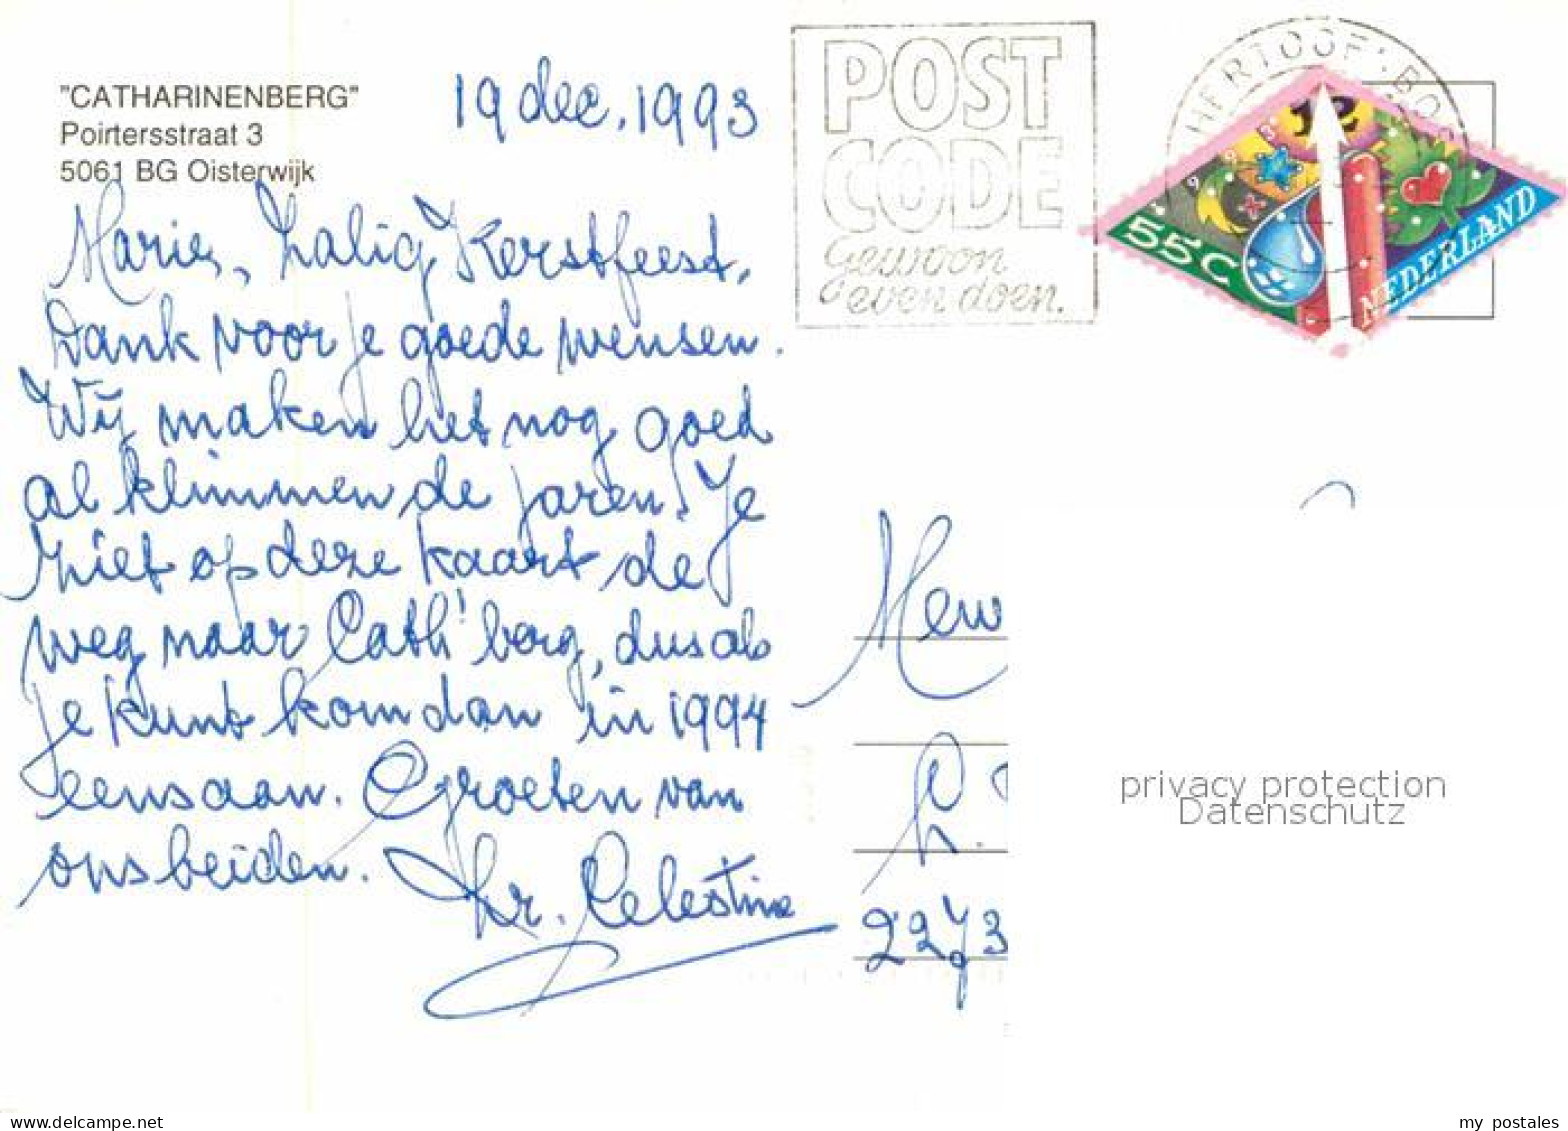 "CATHARINENBERG"
Poirtersstraat 3
5061 BG Oisterwijk
19 dec. 1993
Marie, Zalig Kerstfeest,
Dank voor je goede wensen.
Wij maken het nog goed
al klimmen de jaren! Je
ziet op deze kaart de
weg naar Cath!berg, dus als
je kunt kom dan in 1994
eens aan. Groeten van
ons beiden.
Zr. Celestine
POST
CODE
Gewoon
even doen.
HERTOGEN-BOS
1993
55C
NEDERLAND
Mew
2273
privacy protection
Datenschutz
my postales